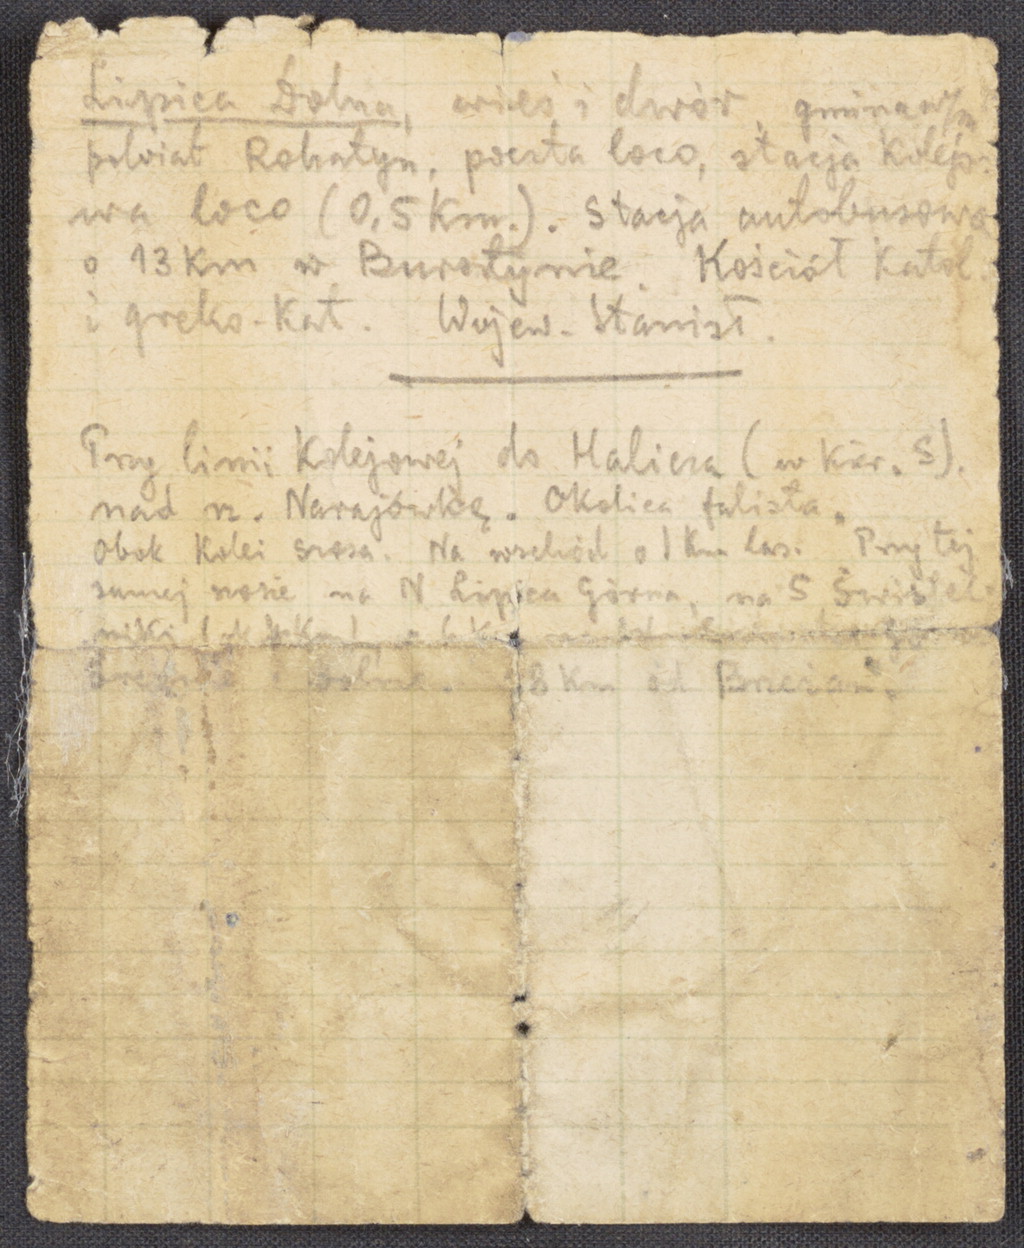 Lipica Dolna, wieś i dwór, gmina
powiat Rohatyn, poczta loco, stacja kolejo-
wa loco (0,5 km.). Stacja autobusowa
o 13 km w Bursztynie. Kościół katol.
i greko-kat. Wojew. Stanisł.
Przy linii kolejowej do Halicza (w kier. S).
nad rz. Narajówką. Okolica falista.
Obok kolei szosa. Na wschód o 1 km las. Przy tej
samej szosie na N Lipica Górna, na S Świstel-
niki
i Dolne. 8 km od Brzeżan.